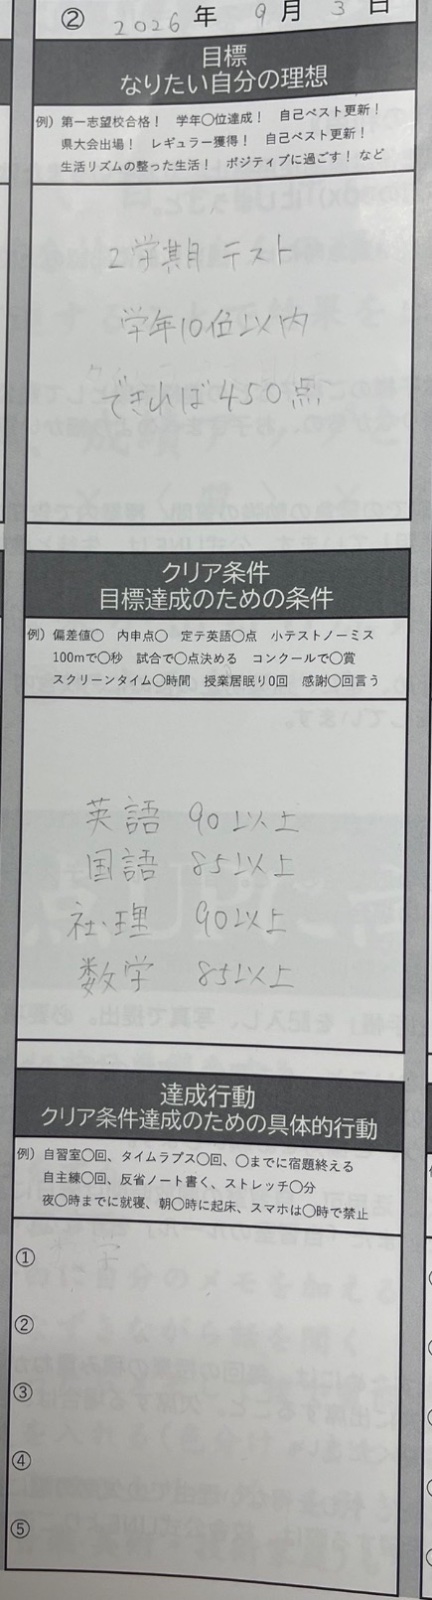 ② 2026 年 9 月 3 日
目標
なりたい自分の理想
例）第一志望校合格！ 学年〇位達成！ 自己ベスト更新！
県大会出場！ レギュラー獲得！ 自己ベスト更新！
生活リズムの整った生活！ ポジティブに過ごす！ など
2学期 テスト
学年10位以内
できれば450点
クリア条件
目標達成のための条件
例）偏差値〇 内申点〇 定テ英語〇点 小テストノーミス
100mで〇秒 試合で〇点決める コンクールで〇賞
スクリーンタイム〇時間 授業居眠り0回 感謝〇回言う
英語 90以上
国語 85以上
社・理 90以上
数学 85以上
達成行動
クリア条件達成のための具体的行動
例）自習室〇回、タイムラプス〇回、〇までに宿題終える
自主練〇回、反省ノート書く、ストレッチ〇分
夜〇時までに就寝、朝〇時に起床、スマホは〇時で禁止
①
②
③
④
⑤